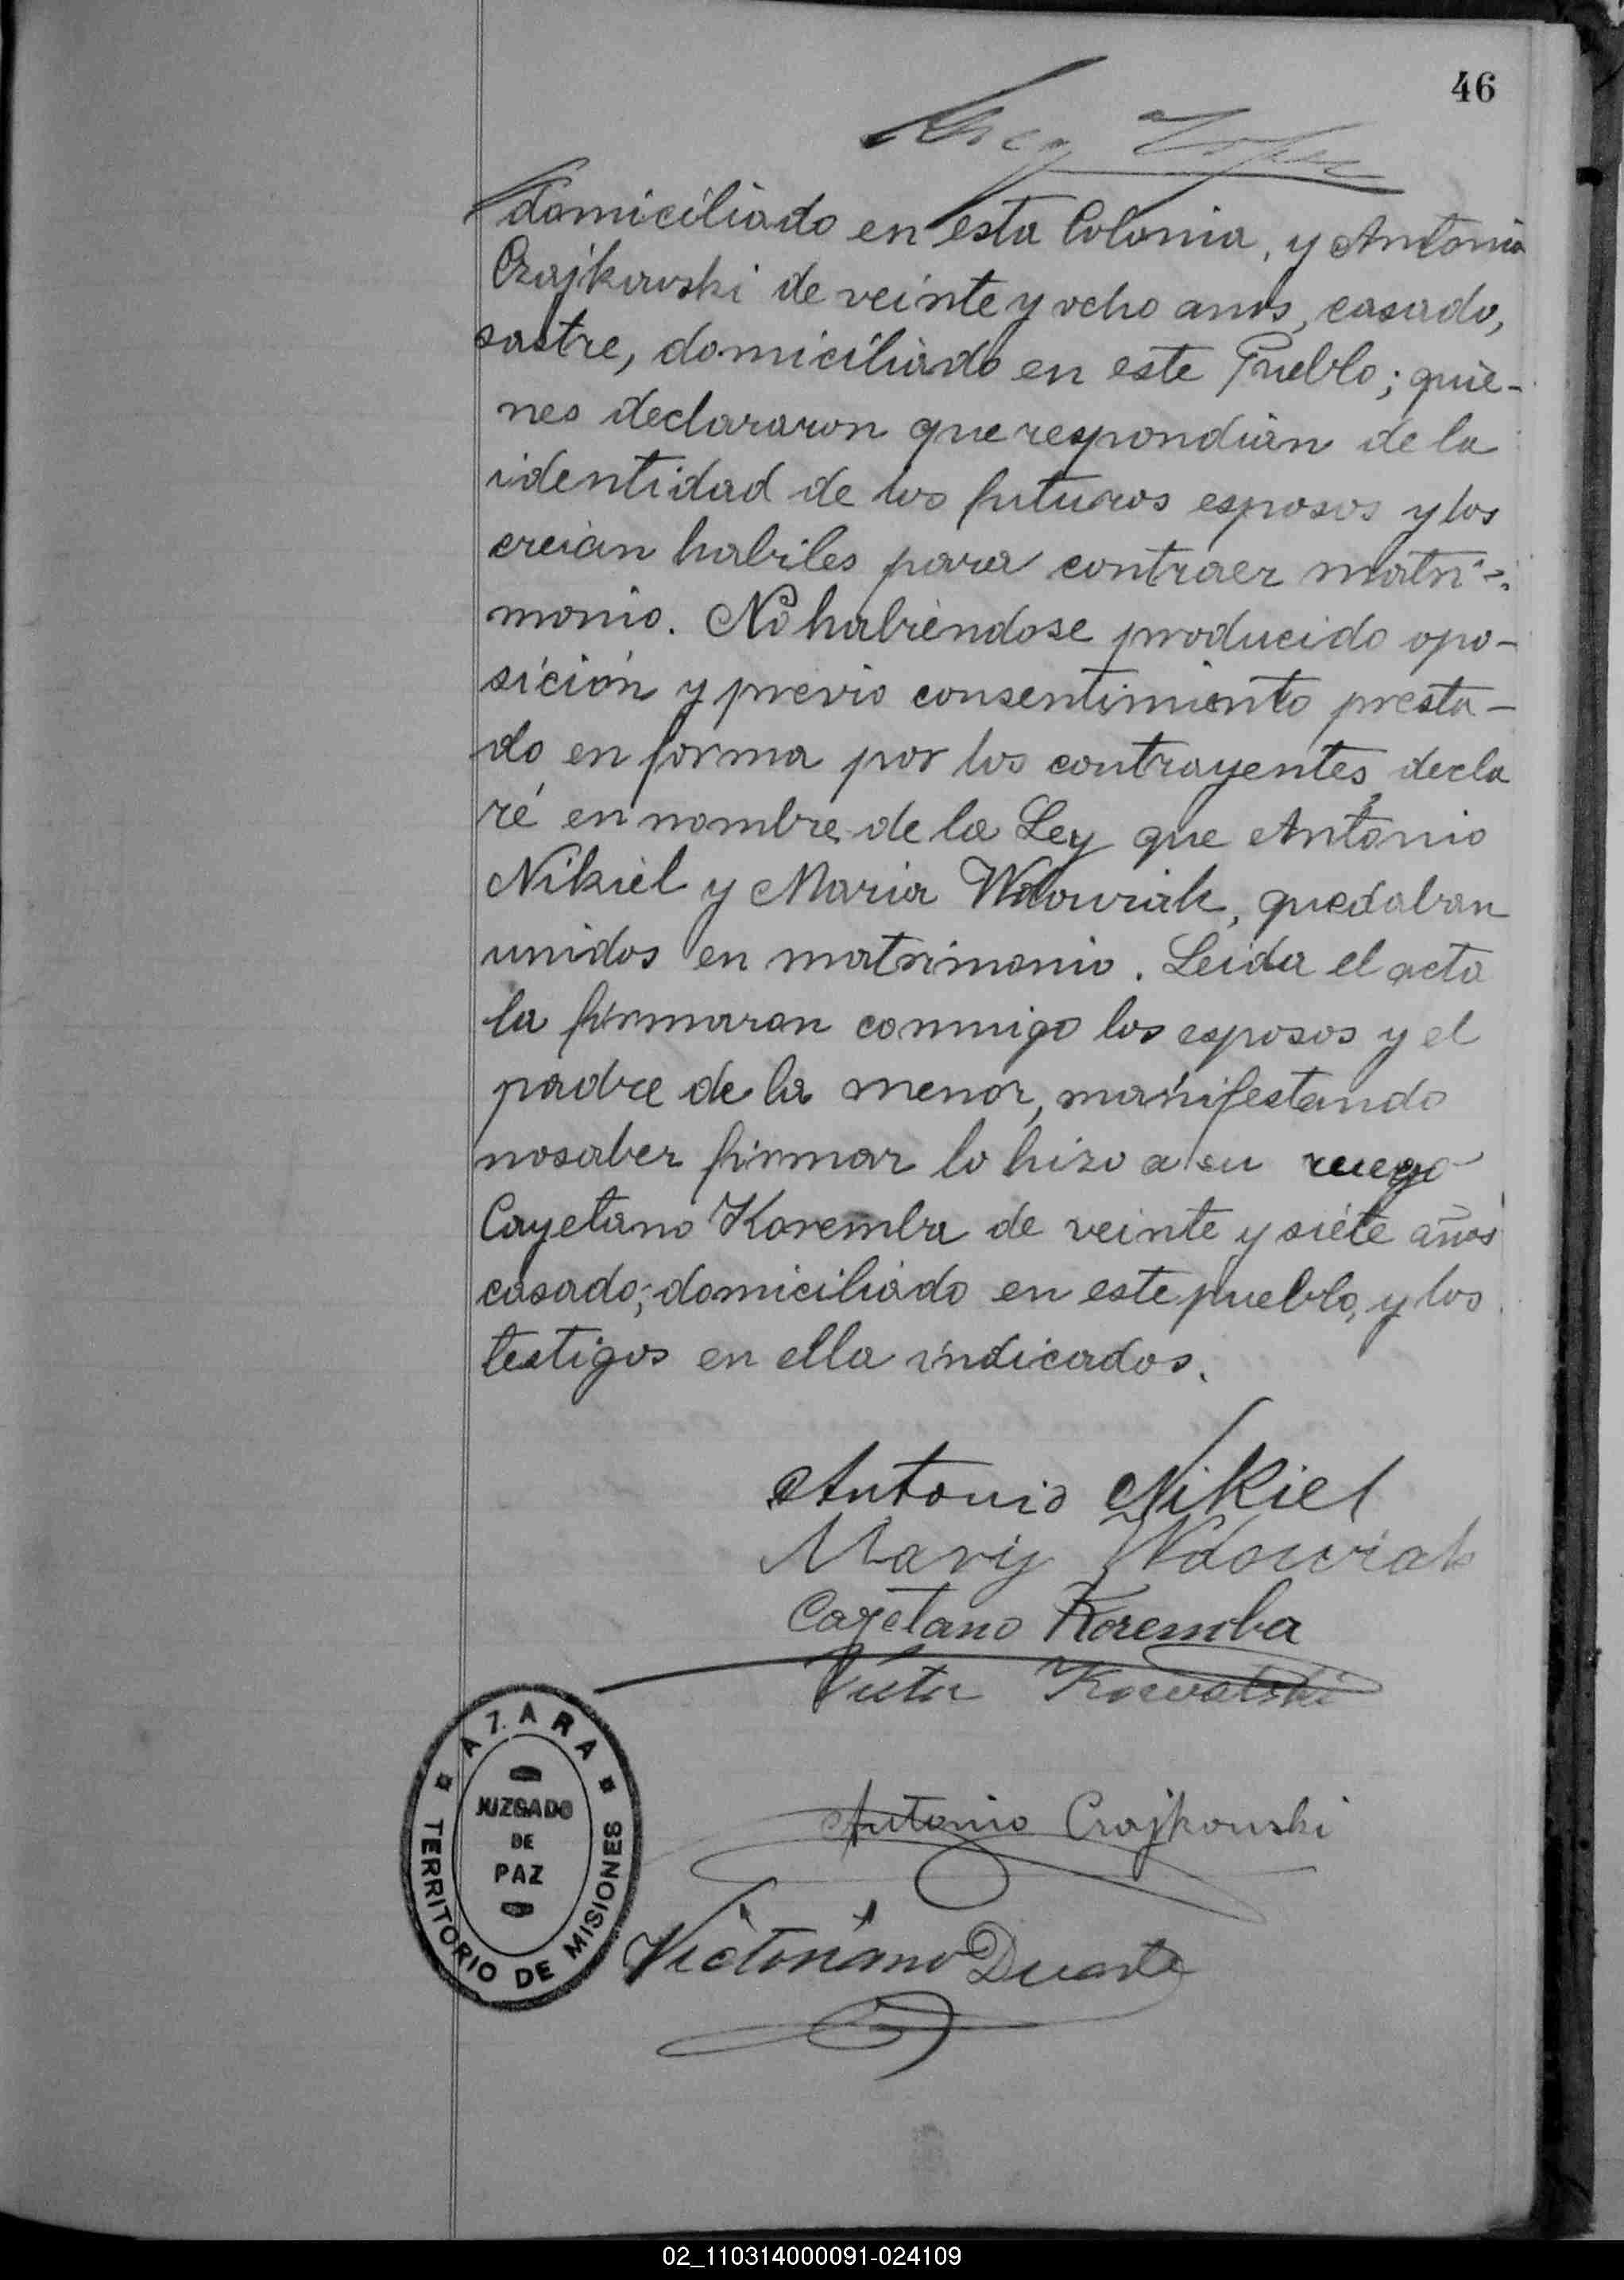 46
domiciliado en esta Colonia, y Antonio
Czajkowski de veinte y ocho anos, casado,
sastre, domiciliado en este Pueblo; quie-
nes declararon que respondian de la
identidad de los futuros esposos y los
creian habiles para contraer matri-
monio. No habiéndose producido opo-
sición y previo consentimiento presta-
do en forma por los contrayentes, decla
ré en nombre de la Ley que Antonio
Nikiel y Maria Wdowiak, quedaban
unidos en matrimonio. Leida el acta
la firmaron conmigo los esposos y el
padre de la menor, manifestando
no saber firmar lo hizo a su ruego
Cayetano Koremba de veinte y siete años
casado, domiciliado en este pueblo, y los
testigos en ella indicados.
Antonio Nikiel
Mary Wdowiak
Cayetano Koremba
Victor Kowalski
AZARA
JUZGADO
DE
PAZ
TERRITORIO DE MISIONES
Antonio Czajkowski
Victoriano Duarte
02_110314000091-024109